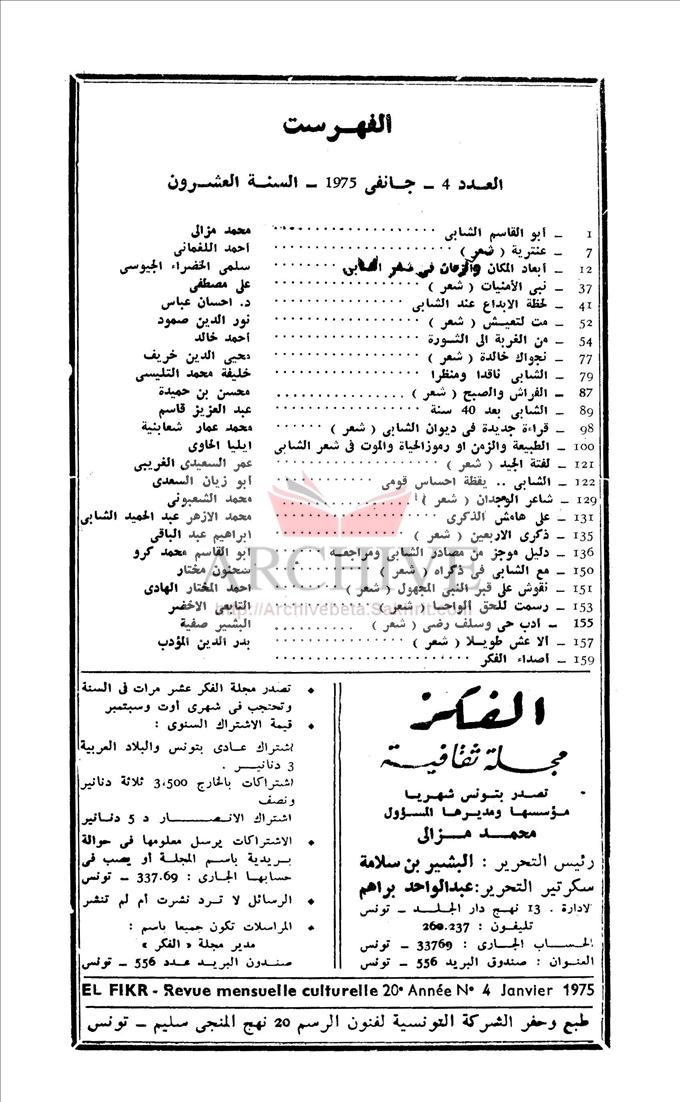 الفهرست
العدد 4 ـ جانفى 1975 ـ السنة العشرون
1 ـ أبو القاسم الشابى محمد مزالى
7 ـ عنترية ( شعر ) أحمد اللغمانى
12 ـ أبعاد المكان والزمان فى شعر الشابى سلمى الخضراء الجيوسى
37 ـ نبى الأمنيات ( شعر ) على مصطفى
41 ـ لحظة الابداع عند الشابى د. احسان عباس
52 ـ مت لتعيش ( شعر ) نور الدين صمود
54 ـ من الغربة الى الثورة أحمد خالد
77 ـ نجواك خالدة ( شعر ) محيى الدين خريف
79 ـ الشابى ناقدا ومنظرا خليفة محمد التليسى
87 ـ الفراش والصبح ( شعر ) محسن بن حميدة
89 ـ الشابى بعد 40 سنة عبد العزيز قاسم
98 ـ قراءة جديدة فى ديوان الشابى ( شعر ) محمد عمار شعابنية
100 ـ الطبيعة والزمن او رموز الحياة والموت فى شعر الشابى ايليا الحاوى
121 ـ لفتة الجيد ( شعر ) عمر السعيدى الغريبى
122 ـ الشابى .. يقظة احساس قومى أبو زيان السعدى
129 ـ شاعر الوجدان ( شعر ) محمد الشعبونى
131 ـ على هامش الذكرى محمد الازهر عبد الحميد الشابى
135 ـ ذكرى الاربعين ( شعر ) ابراهيم عبد الباقى
136 ـ دليل موجز من مصادر الشابى ومراجعه ابو القاسم محمد كرو
150 ـ مع الشابى فى ذكراه ( شعر ) سحنون مختار
151 ـ نقوش على قبر النبى المجهول ( شعر ) احمد المختار الهادى
153 ـ رسمت للحق الواحبا ( شعر ) التابعى الاخضر
155 ـ ادب حى وسلف رضى ( شعر ) البشير صفية
157 ـ ألا عش طويلا ( شعر ) بدر الدين المؤدب
159 ـ أصداء الفكر
ARCHIVE
http://Archivebeta.Sakhrit.com
الفكر
مجلة ثقافية
تصدر بتونس شهريا
مؤسسها ومديرها المسؤول
محمد مزالى
رئيس التحرير : البشير بن سلامة
سكرتير التحرير : عبدالواحد براهم
الادارة . 13 نهج دار الجلد ـ تونس
تليفون : 260.237
الحساب الجارى : 33769 ـ تونس
العنوان : صندوق البريد 556 ـ تونس
• تصدر مجلة الفكر عشر مرات فى السنة
وتحتجب فى شهرى أوت وسبتمبر
• قيمة الاشتراك السنوى :
اشتراك عادى بتونس والبلاد العربية
3 دنانير .
اشتراكات بالخارج 3,500 ثلاثة دنانير
ونصف
اشتراك الانصار د 5 دنانير
• الاشتراكات يرسل معلومها فى حوالة
بريدية باسم المجلة أو يصب فى
حسابها الجارى : 337.69 ـ تونس
• الرسائل لا ترد نشرت أم لم تنشر
• المراسلات تكون جميعا باسم :
مدير مجلة « الفكر »
صندوق البريد عدد 556 ـ تونس
EL FIKR - Revue mensuelle culturelle 20e Année N° 4 Janvier 1975
طبع وحفر الشركة التونسية لفنون الرسم 20 نهج المنجى سليم ـ تونس